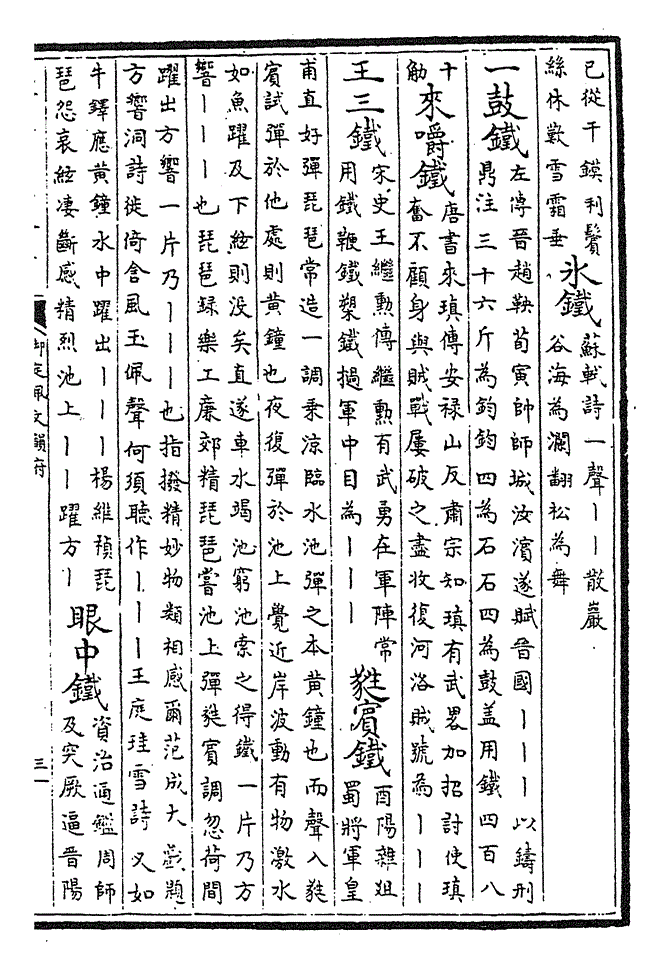 已從干鏌利鬢
絲休歎雪霜垂
氷鐵
蘇軾詩一聲丨丨散巖
谷海為瀾翻松為舞
一鼓鐵
左傳晉趙鞅荀寅帥師城汝濱遂賦晉國丨丨丨以鑄刑
鼎注三十六斤為鈞鈞四為石石四為鼓盖用鐵四百八
十
觔
來嚼鐵
唐書來瑱傳安禄山反肅宗知瑱有武畧加招討使瑱
奮不顧身與賊戰屢破之盡收復河洛賊號為丨丨丨
王三鐵
宋史王繼勲傳繼勲有武勇在軍陣常
用鐵鞭鐵槊鐵撾軍中目為丨丨丨
蕤賓鐵
酉陽雜俎
蜀將軍皇
甫直好彈琵琶常造一調乘涼臨水池彈之本黄鐘也而聲入蕤
賓試彈於他處則黄鐘也夜復彈於池上覺近岸波動有物激水
如魚躍及下絃則没矣直遂車水竭池窮池索之得鐵一片乃方
響丨丨丨也琵琶録樂工廉郊精琵琶嘗池上彈蕤賓調忽荷間
躍出方響一片乃丨丨丨也指撥精妙物類相感爾范成大戲題
方響洞詩徙倚含風玉佩聲何須聽作丨丨丨王庭珪雪詩又如
牛鐸應黄鐘水中躍出丨丨丨楊維楨琵
琶怨哀絃凄斷感精烈池上丨丨躍方丨
眼中鐵
資治通鑑周師
及突厥逼晉陽
御定佩文韻府
三一